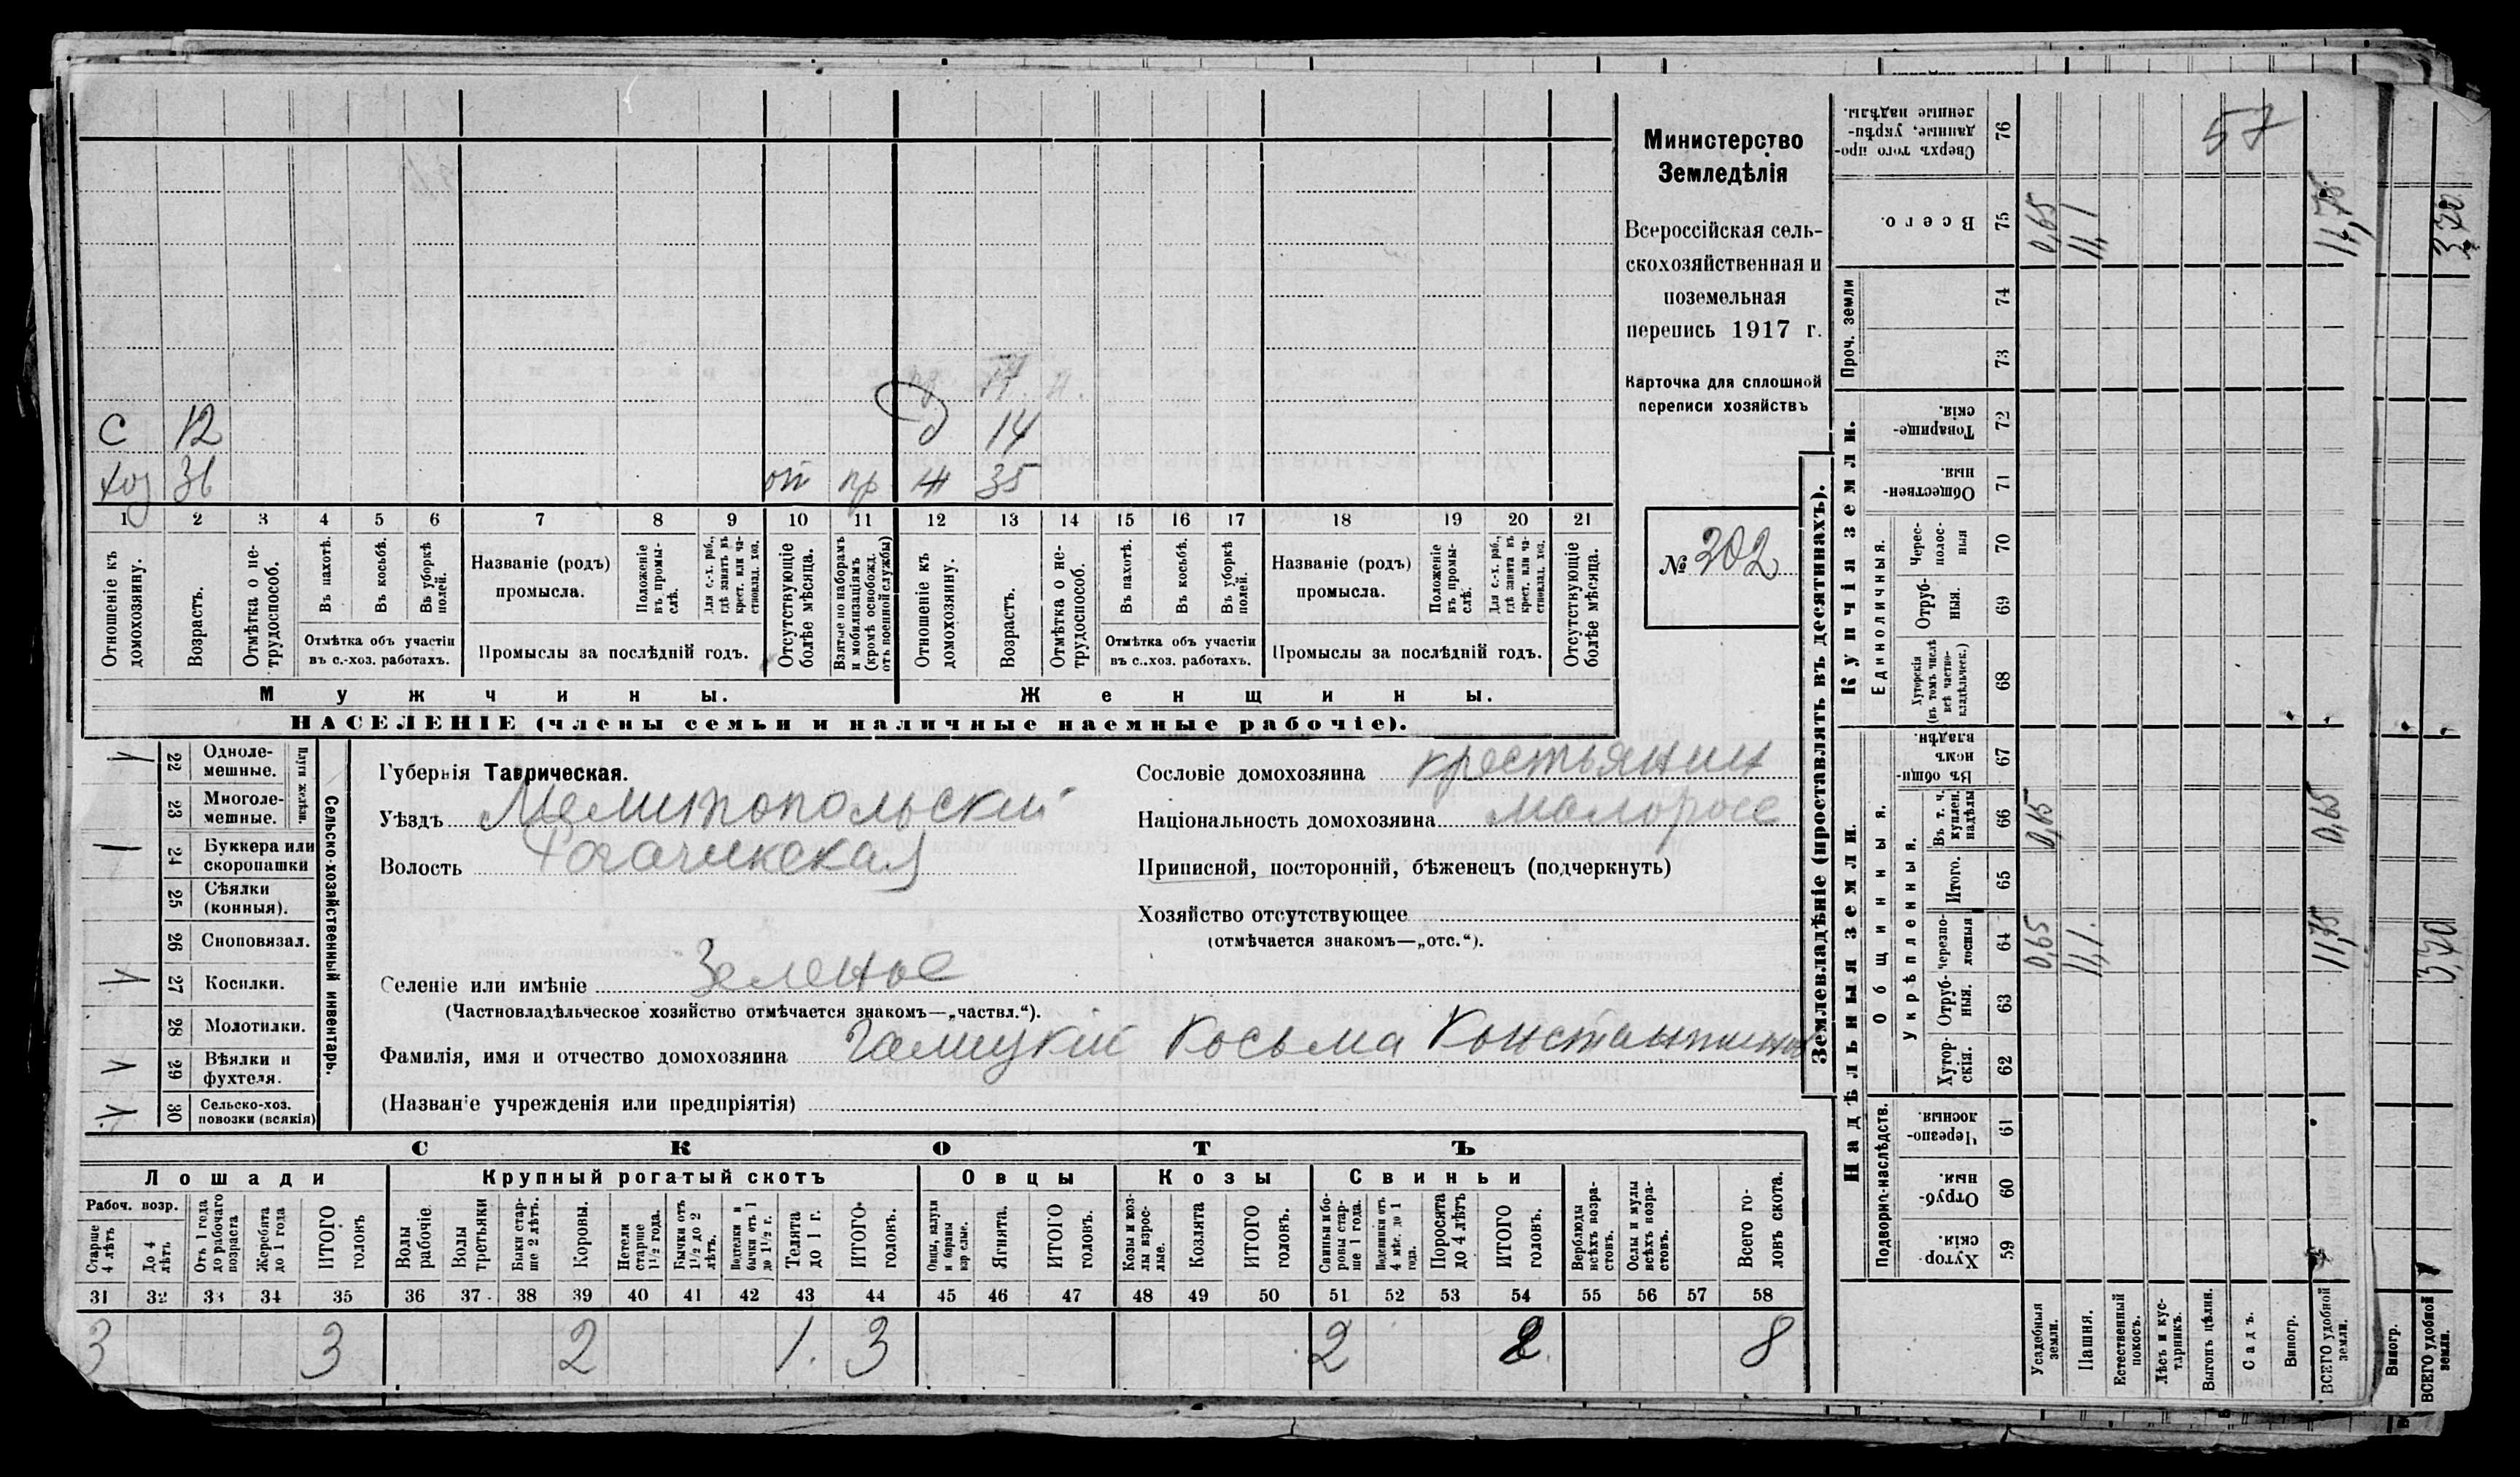 57
Министерство
Земледѣлія
Всероссійская сель-
скохозяйственная и
поземельная
перепись 1917 г.
Карточка для сплошной
переписи хозяйствъ
№ 202
с 12 д 14
хоз 36 от пр ж 35
1 2 3 4 5 6 7 8 9 10 11 12 13 14 15 16 17 18 19 20 21
Отношеніе къ домохозяину.
Возрастъ.
Отмѣтка о не-трудоспособ.
Въ пахотѣ.
Въ косьбѣ.
Въ уборкѣ полей.
Отмѣтка объ участіи
въ с.-хоз. работахъ.
Названіе (родъ)
промысла.
Положеніе въ промы-слѣ.
Для с.-х. раб., гдѣ занятъ въ крест. или ча-стновлад. хоз.
Промыслы за послѣдній годъ.
Отсутствующіе болѣе мѣсяца.
Взятые по наборамъ и мобилизаціямъ (кромѣ освобожд. отъ военной службы)
Отношеніе къ домохозяину.
Возрастъ.
Отмѣтка о не-трудоспособ.
Въ пахотѣ.
Въ косьбѣ.
Въ уборкѣ полей.
Отмѣтка объ участіи
въ с.-хоз. работахъ.
Названіе (родъ)
промысла.
Положеніе въ промы-слѣ.
Для с.-х. раб., гдѣ занята въ крест. или ча-стновлад. хоз.
Промыслы за послѣдній годъ.
Отсутствующіе болѣе мѣсяца.
Мужчины. Женщины.
НАСЕЛЕНІЕ (члены семьи и наличные наемные рабочіе).
Сельско-хозяйственный инвентарь.
Плуги желѣзн.
22 Одноле-мешные.
23 Многоле-мешные.
24 Буккера или скоропашки
25 Сѣялки (конныя).
26 Сноповязал.
27 Косилки.
28 Молотилки.
29 Вѣялки и фухтеля.
30 Сельско-хоз. повозки (всякія)
Губернія Таврическая.
Уѣздъ Мелитопольский
Волость Рогачикская
Селеніе или имѣніе Зеленое
(Частновладѣльческое хозяйство отмѣчается знакомъ—„частвл.“).
Фамилія, имя и отчество домохозяина Галицкій Косьма Константинов
(Названіе учрежденія или предпріятія)
Сословіе домохозяина крестьянин
Національность домохозяина малоросс
Приписной, посторонній, бѣженецъ (подчеркнуть)
Хозяйство отсутствующее
(отмѣчается знакомъ—„отс.“).
СКОТЪ
Лошади Крупный рогатый скотъ Овцы Козы Свиньи
Рабоч. возр.
Старше 4 лѣтъ
До 4 лѣтъ
Отъ 1 года до рабочаго возраста
Жеребята до 1 года
ИТОГО головъ
Волы рабочіе.
Волы третьяки
Быки стар-ше 2 лѣтъ.
Коровы.
Нетели старше 1½ года.
Бычки отъ 1½ до 2 лѣтъ.
Подтелки и бычки отъ 1 до 1½ г.
Телята до 1 г.
ИТОГО головъ.
Овцы, валухи и бараны взрослые.
Ягнята.
ИТОГО головъ.
Козы и коз-лы взрос-лые.
Козлята
ИТОГО головъ.
Свиньи и бо-ровы стар-ше 1 года.
Подсвинки отъ 4 мѣс. до 1 года.
Поросята до 4 лѣтъ
ИТОГО головъ.
Верблюды всѣхъ возра-стовъ.
Ослы и мулы всѣхъ возра-стовъ.
Всего го-ловъ скота.
31 32 33 34 35 36 37 38 39 40 41 42 43 44 45 46 47 48 49 50 51 52 53 54 55 56 57 58
3 3 2 1. 3 2 2. 8
Землевладѣніе (проставлять въ десятинахъ).
Надѣльныя земли. Купчія земли. Проч. земли
Подворно-наслѣдств.
Общинныя.
Укрѣпленныя.
Единоличныя.
Хутор-скія. 59
Отруб-ныя. 60
Черезпо-лосныя. 61
Хутор-скія. 62
Отруб-ныя. 63
Черезпо-лосныя 64
Итого. 65
Въ т. ч. куплен. надѣлы 66
Въ общи-номъ владѣн. 67
Хуторскія (въ томъ числѣ всѣ частно-владѣльческ.) 68
Отруб-ныя. 69
Черес-полос-ныя 70
Обществен-ныя. 71
Товарище-скія. 72
73
74
Всего. 75
Сверхъ того про-данные, укрѣп-ленные надѣлы. 76
Усадебныя земли. 0,65 0,65 0,65
Пашня. 11,1. 11,1
Естественный покосъ.
Лѣсъ и кус-тарникъ.
Выгонъ цѣлин.
Садъ.
Виногр.
ВСЕГО удобной земли. 11,75 0,65 11,75
Виногр.
ВСЕГО удобной земли. 3,70